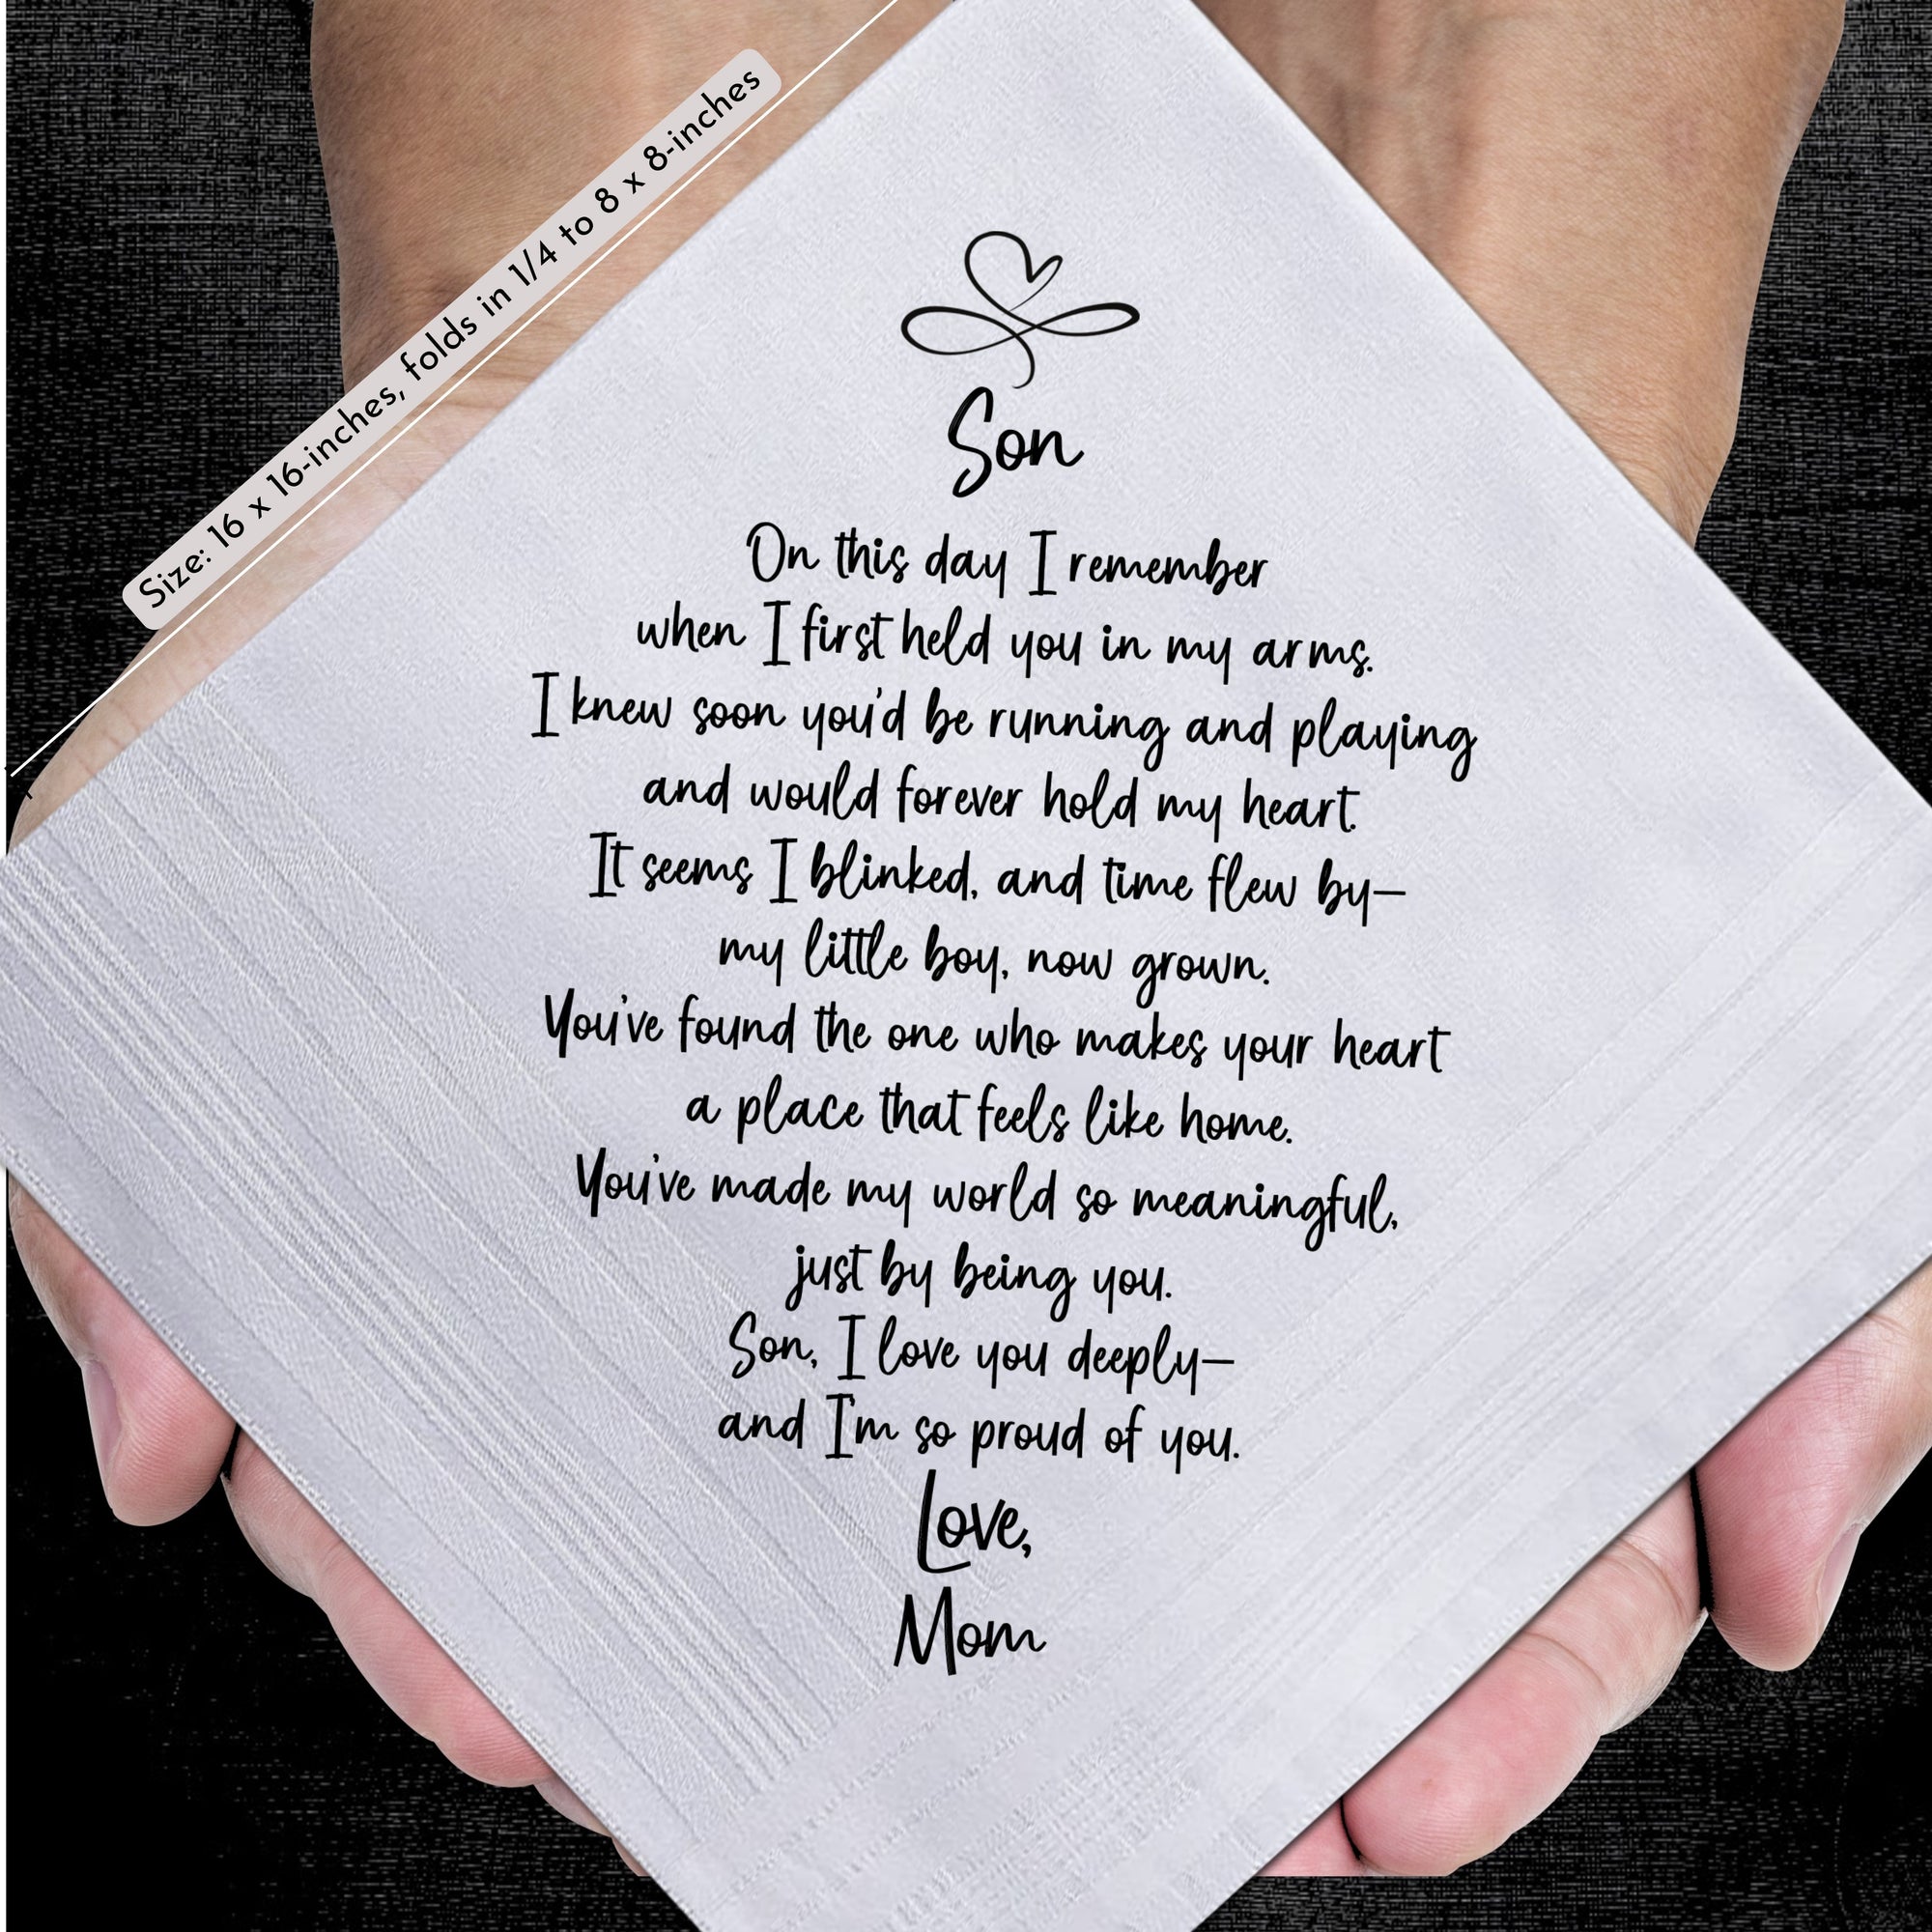 Size: 16 x 16-inches, folds in 1/4 to 8 x 8-inches
Son
On this day I remember
when I first held you in my arms.
I knew soon you'd be running and playing
and would forever hold my heart.
It seems I blinked, and time flew by—
my little boy, now grown.
You've found the one who makes your heart
a place that feels like home.
You've made my world so meaningful,
just by being you.
Son, I love you deeply—
and I'm so proud of you.
Love,
Mom